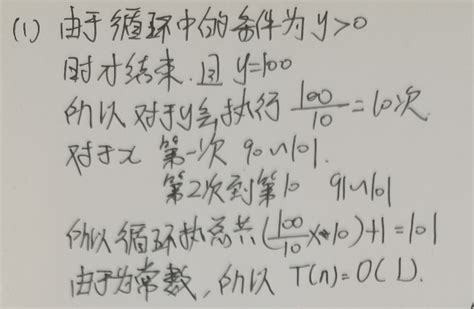 (1) 由于循环中的条件为y>0
时才结束.因y=100
所以对于y会执行 100/10 = 10次
对于x 第一次 90~101.
第2次到第10 91~101
所以循环执总共(100/10×10)+1=101
由于为常数,所以 T(n)=O(1).